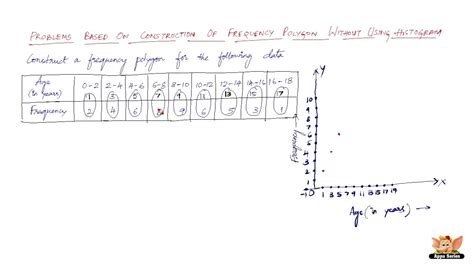 PROBLEMS BASED ON CONSTRUCTION OF FREQUENCY POLYGON WITHOUT USING HISTOGRAM
Construct a frequency polygon for the following data
Age (in years) 0-2 2-4 4-6 6-8 8-10 10-12 12-14 14-16 16-18
1 3 5 7 9 11 13 15 17
Frequency 2 4 6 8 9 6 5 3 1
Y
10
9
8
7
6
5
4
3
2
1
Frequency
-1 0 1 3 5 7 9 11 13 15 17 19 X
Age (in years)
Appu Series